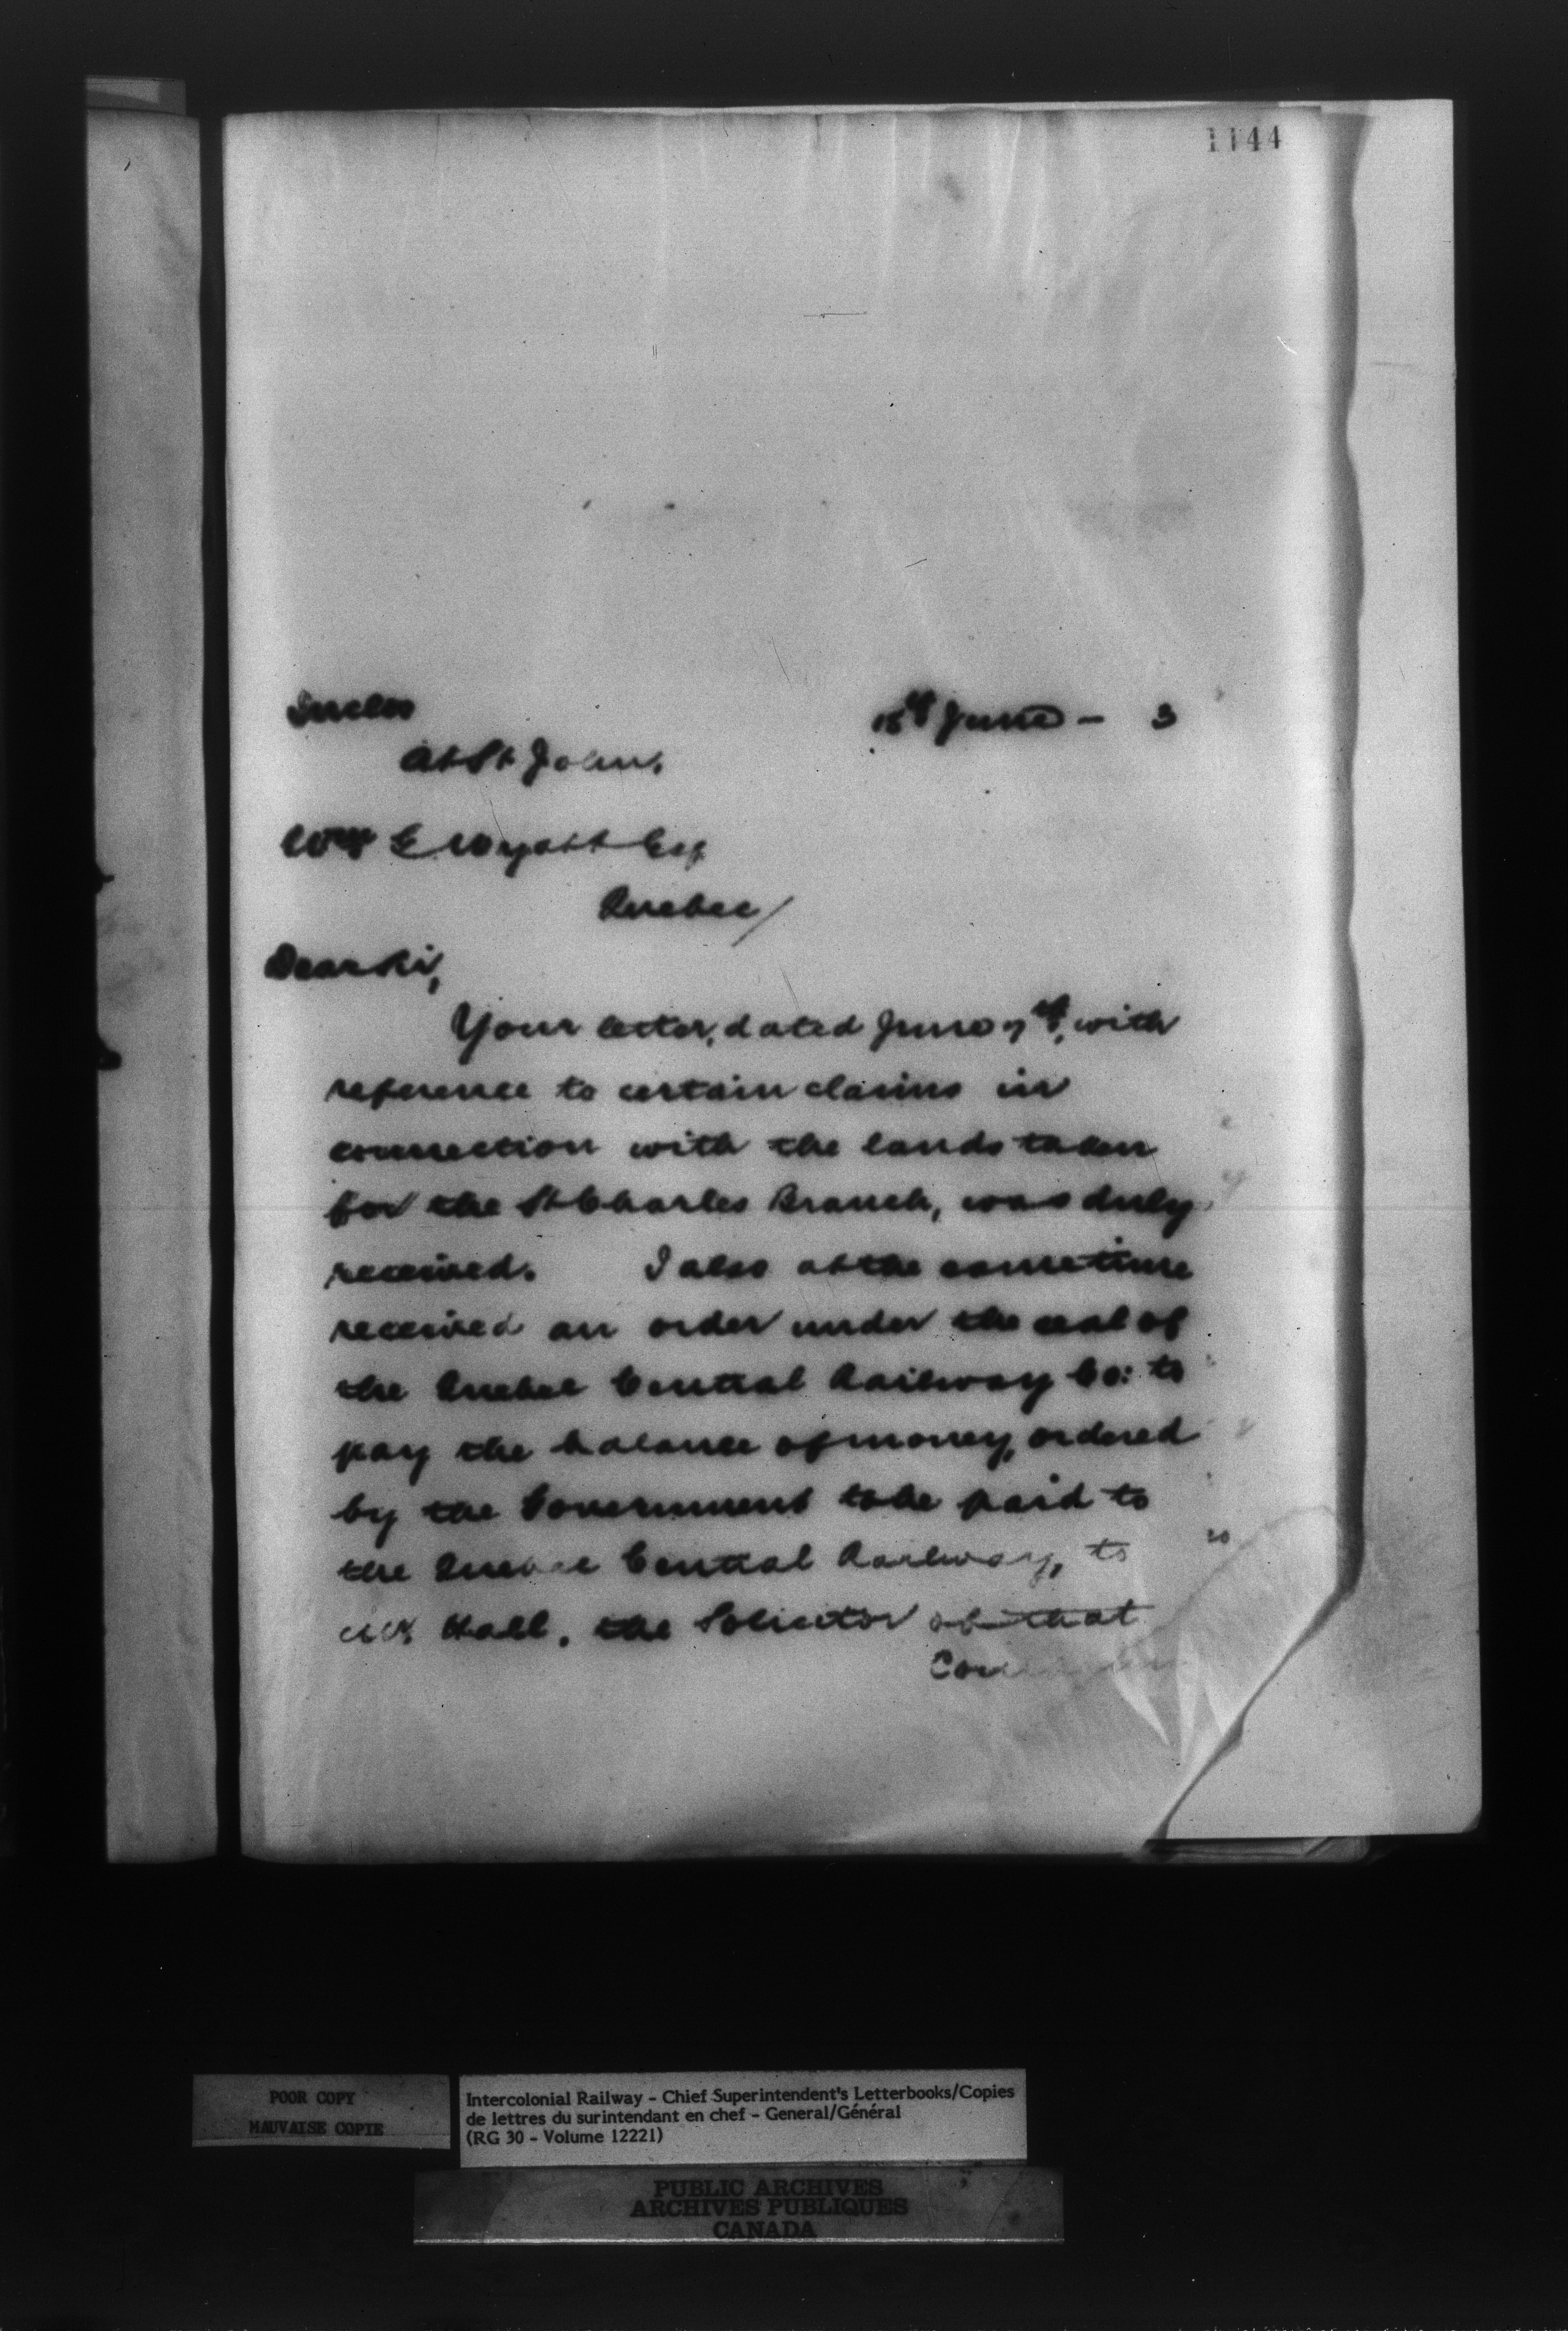 1144
Encls
15th June - 3
At St John.
Wm E Wyatt Esq
Quebec/
Dear Sir,
Your letter, dated June 7th, with
reference to certain claims in
connection with the lands taken
for the St Charles Branch, was duly
received. I also at the same time
received an order under the seal of
the Quebec Central Railway Co: to
pay the balance of money, ordered
by the Government to be paid to
the Quebec Central Railway, to
Mr Hall, the Solicitor of that
POOR COPY
MAUVAISE COPIE
Intercolonial Railway - Chief Superintendent's Letterbooks/Copies
de lettres du surintendant en chef - General/Général
(RG 30 - Volume 12221)
PUBLIC ARCHIVES
ARCHIVES PUBLIQUES
CANADA